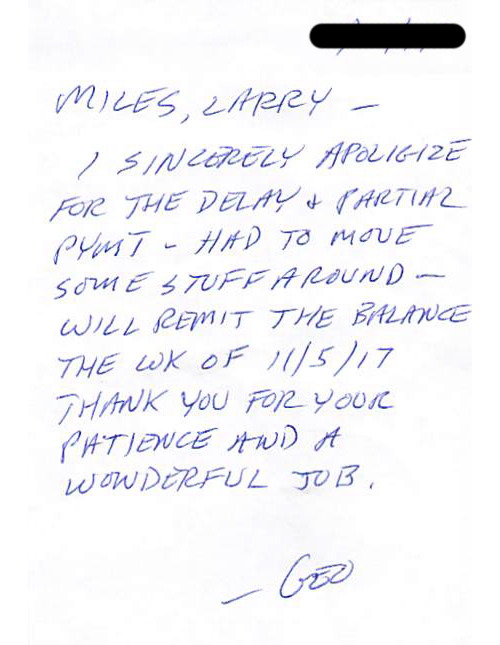 MILES, LARRY —
I SINCERELY APOLIGIZE
FOR THE DELAY & PARTIAL
PYMT - HAD TO MOVE
SOME STUFF AROUND —
WILL REMIT THE BALANCE
THE WK OF 11/5/17
THANK YOU FOR YOUR
PATIENCE AND A
WONDERFUL JOB.
— GEO